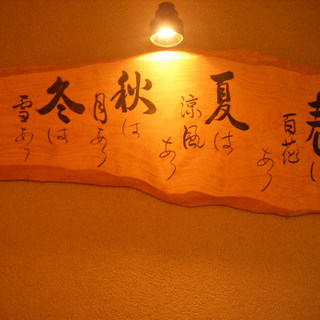 春は
百花あり
夏は
涼風あり
秋は
月あり
冬は
雪あり